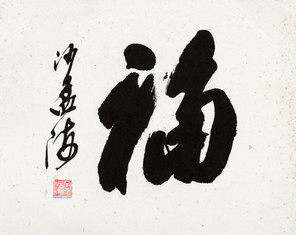 福
沙孟海